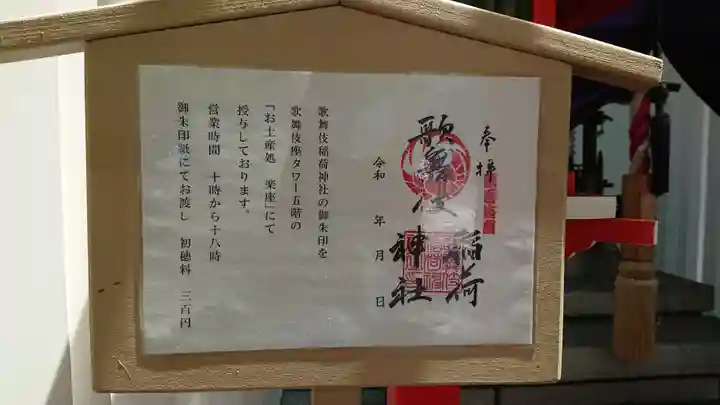 奉拝
歌舞伎
稲荷
神社
令和　年　月　日
歌舞伎稲荷神社の御朱印を
歌舞伎座タワー五階の
「お土産処　楽座」にて
授与しております。
営業時間　十時から十八時
御朱印紙にてお渡し　初穂料　三百円